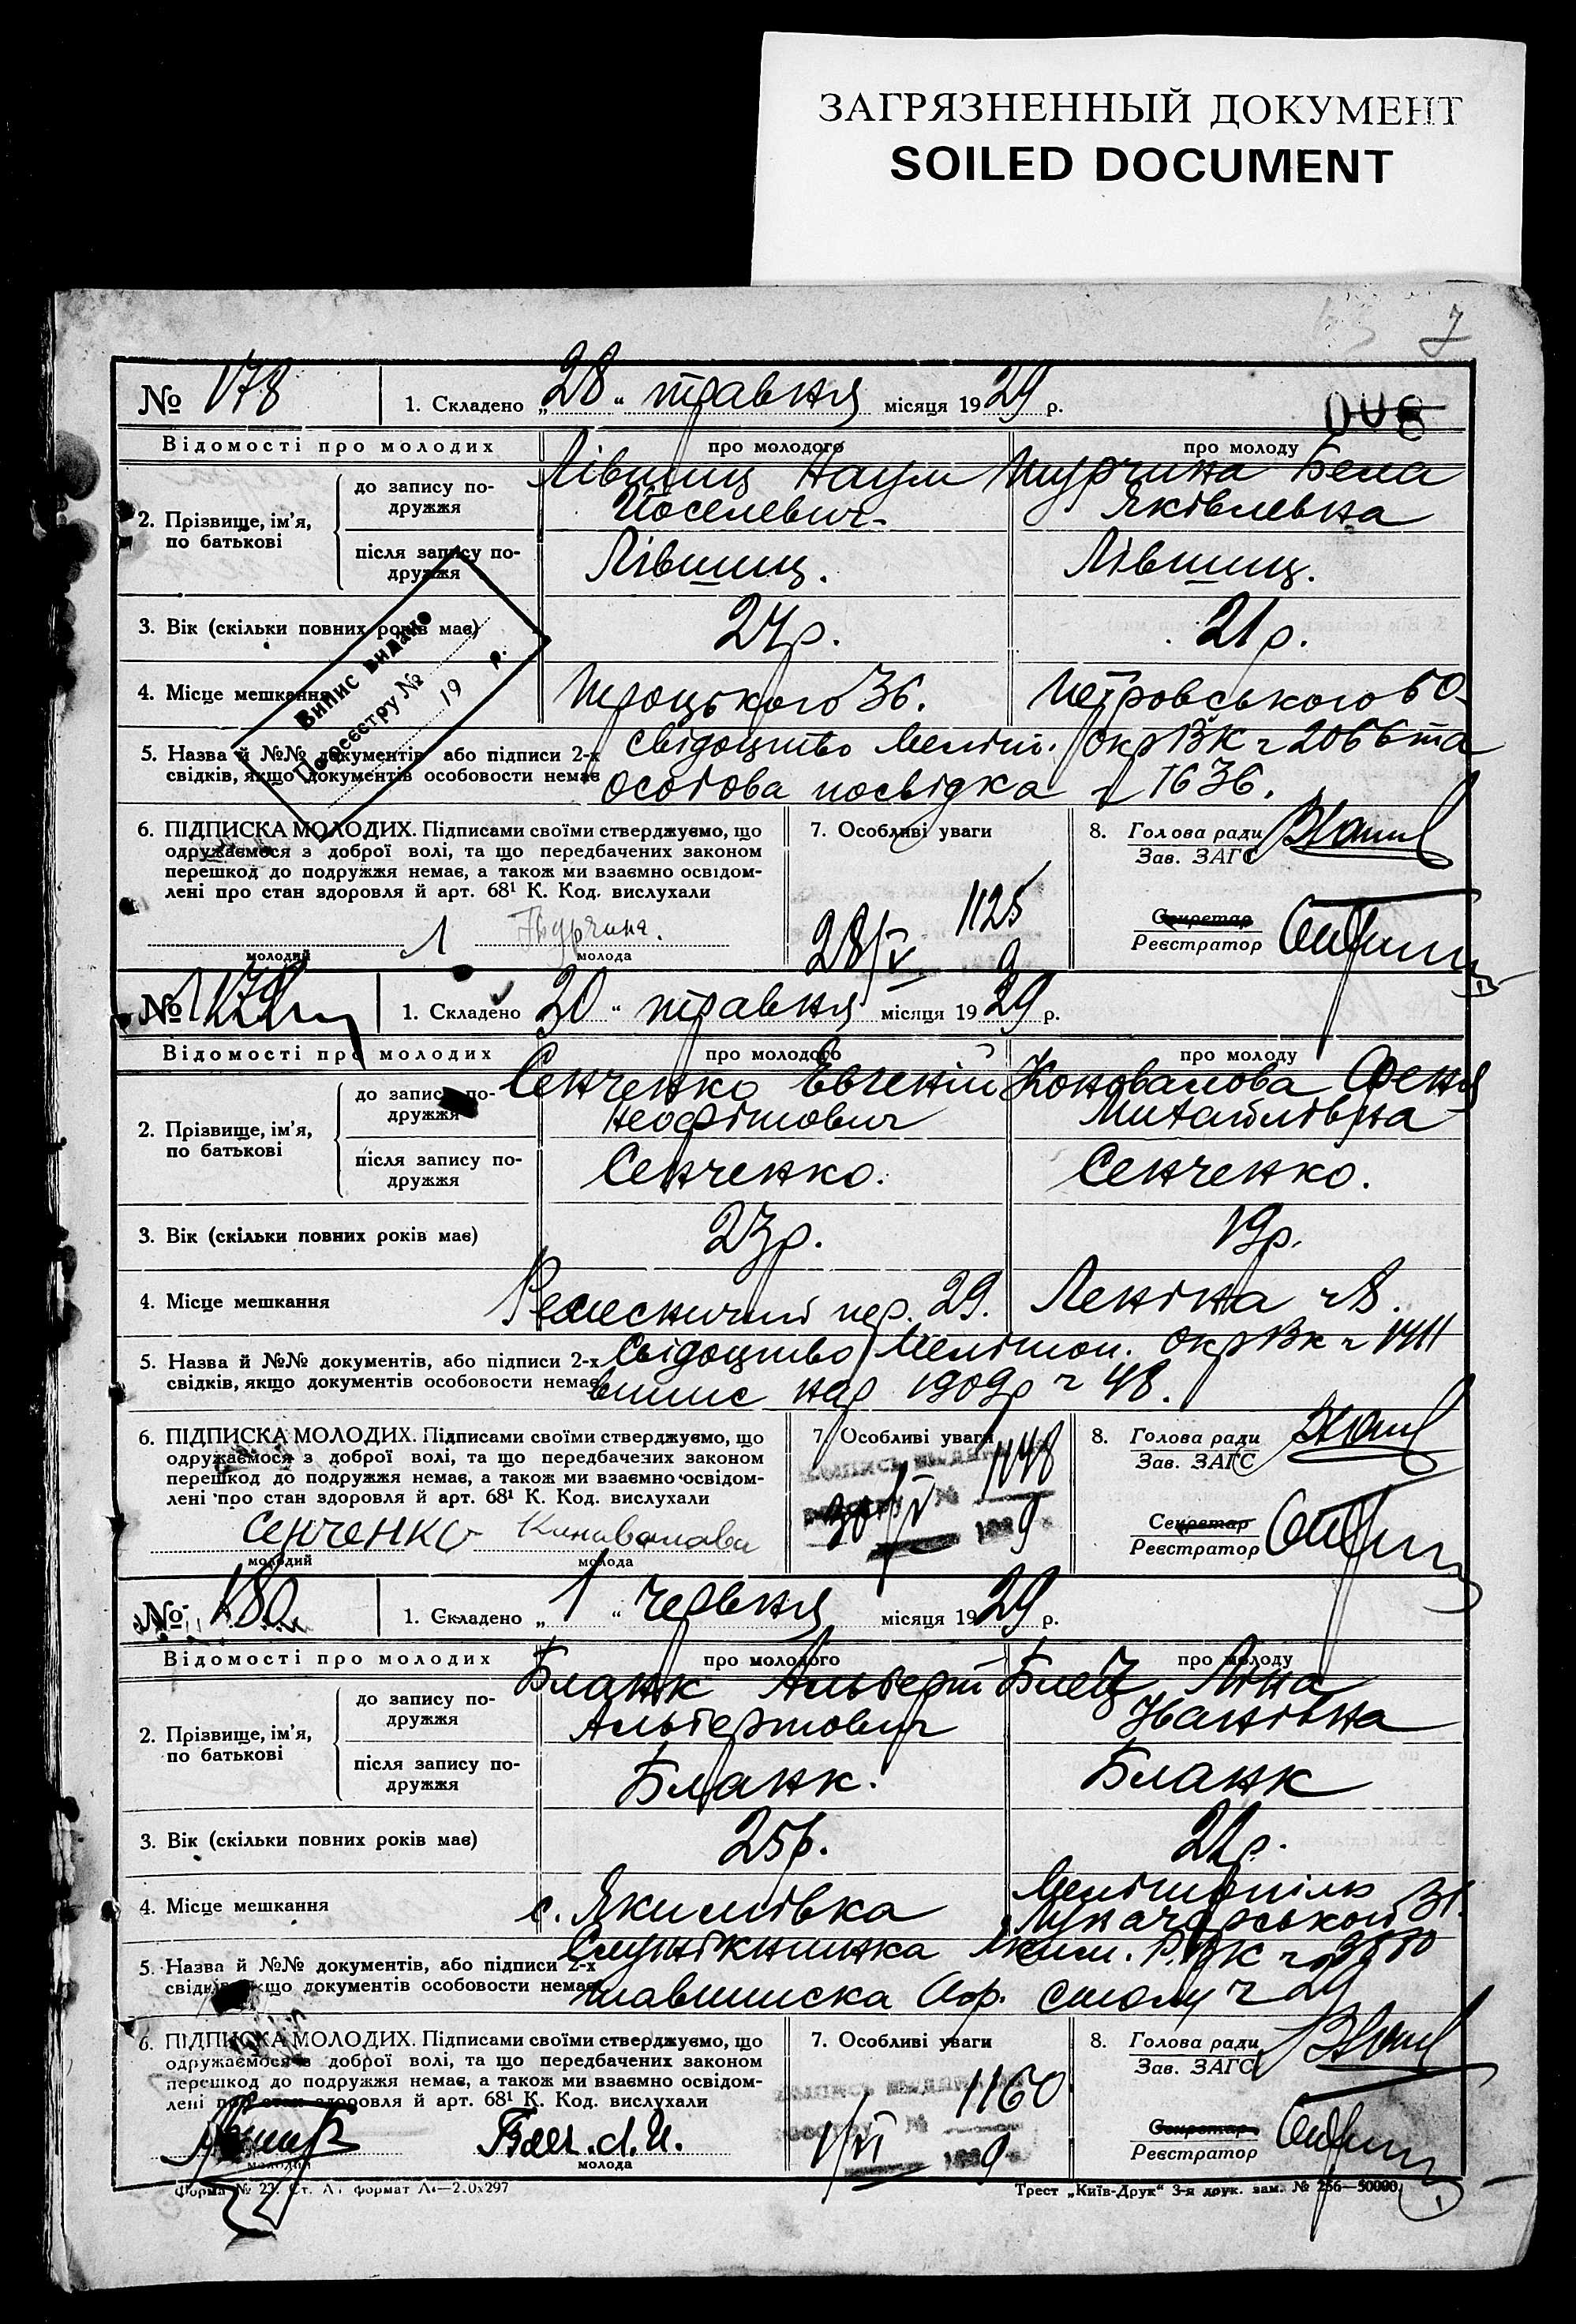 ЗАГРЯЗНЕННЫЙ ДОКУМЕНТ
SOILED DOCUMENT
7
№ 178 1. Складено „28“ травня місяця 1929 р.
008
Відомості про молодих про молодого про молоду
2. Прізвище, ім’я, по батькові
до запису подружжя Лівшиц Наум Йоселевич Яківлевна
після запису подружжя Лівшиц. Лівшиц.
3. Вік (скільки повних років має) 24р. 21р.
4. Місце мешкання Троцького 36. Петровського 60
Випис видано
По реєстру №
19 р.
5. Назва й №№ документів, або підписи 2-х Свідоцтво Меліт. ОкрВК ч 2066 та
свідків, якщо документів особовости немає особова посвідка ч 1636.
6. ПІДПИСКА МОЛОДИХ. Підписами своїми стверджуємо, що
одружаємося з доброї волі, та що передбачених законом
перешкод до подружжя немає, а також ми взаємно освідом-
лені про стан здоровля й арт. 68¹ К. Код. вислухали
молодий молода
7. Особливі уваги
1125
28/V 9
8. Голова ради
Зав. ЗАГС
Секретар
Реєстратор
№ 179 1. Складено 30“ травня місяця 1929 р.
Відомості про молодих про молодого про молоду
2. Прізвище, ім’я, по батькові
до запису подружжя Сенченко Евгеній Неофітович Коновалова Феня Михайлівна
після запису подружжя Сенченко. Сенченко.
3. Вік (скільки повних років має) 23р. 19р.
4. Місце мешкання пер. 29. Леніна ч 8.
5. Назва й №№ документів, або підписи 2-х Свідоцтво Мелітоп. ОкрВк ч 1411
свідків, якщо документів особовости немає випис нар 1909р ч 48.
6. ПІДПИСКА МОЛОДИХ. Підписами своїми стверджуємо, що
одружаємося з доброї волі, та що передбачених законом
перешкод до подружжя немає, а також ми взаємно освідом-
лені про стан здоровля й арт. 68¹ К. Код. вислухали
Сенченко Коновалова
молодий молода
7. Особливі уваги
1148
30/V 9
8. Голова ради
Зав. ЗАГС
Секретар
Реєстратор
№ 180 1. Складено „1“ червня місяця 1929 р.
Відомості про молодих про молодого про молоду
2. Прізвище, ім’я, по батькові
до запису подружжя Бланк Альберт Альбертович Ліна Іванівна
після запису подружжя Бланк. Бланк
3. Вік (скільки повних років має) 25р. 21р.
4. Місце мешкання с. Якимівка Мелітопіль Луначарської 31.
5. Назва й №№ документів, або підписи 2-х Яким. РВК ч
свідків, якщо документів особовости немає Адр. столу ч 29
6. ПІДПИСКА МОЛОДИХ. Підписами своїми стверджуємо, що
одружаємося з доброї волі, та що передбачених законом
перешкод до подружжя немає, а також ми взаємно освідом-
лені про стан здоровля й арт. 68¹ К. Код. вислухали
молодий молода
7. Особливі уваги
1160
1/VI 9
8. Голова ради
Зав. ЗАГС
Секретар
Реєстратор
Трест „Київ-Друк“ 3-я друк. зам. № 256—50000.